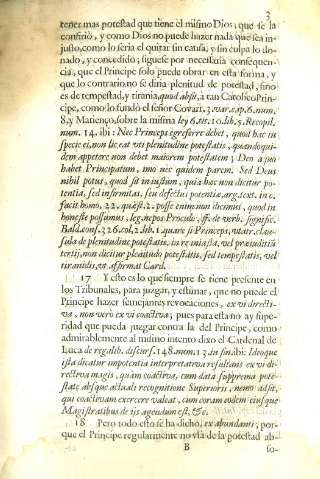 3
tener mas potestad que tiene el mismo Dios; que se la
confirió, y como Dios no puede hazer nada que sea in-
justo, como lo seria el quitar sin causa, y sin culpa lo do-
nado, y concedido; siguese por necessaria consequen-
cia, que el Principe solo puede obrar en esta forma, y
que lo contrario no se diria plenitud de potestad, sino
es de tempestad, y tirania, quod absit, à tan Catolico Prin-
cipe, como lo fundò el señor Covarr. 3. var. cap. 6. num.
8. y Matienço, sobre la misma ley 6. tit. 10. lib. 5. Recopil.
num. 14. ibi: Nec Princeps egre ferre debet, quod hac in
specie ei, non liceat uti plenitudine potestatis, quandoqui-
dem appetere non debet maiorem potestatem; Deo a quo
habet Principatum, imo nec quidem parem. Sed Deus
nihil potest, quod sit iniustum, quia hac non dicitur po-
tentia, sed infirmitas, seu defectus potentiæ, arg. text. in c.
facit homo, 22. quæst. 2. posse enim non dicimur, quod in
honeste possumus, leg. nepos Proculo, ff. de verb. signific.
Bald. cons. 326. col. 2. lib. 1. quare si Princeps, utatur clau-
sula de plenitudine potestatis, in re iniusta, vel præiuditia
tertij, non dicitur plenitudo potestatis, sed tempestatis, vel
tirannidis, ut affirmat Card.
17 Y esto es lo que siempre se tiene presente en
los Tribunales, para juzgar, y estimar, que no puede el
Principe hazer semejantes revocaciones, ex vi directi-
va, non verò ex vi coactiva; pues para esta no ay supe-
ridad que pueda juzgar contra la del Principe, como
admirablemente al mismo intento dixo el Cardenal de
Luca de regalib. discurs. 148. num. 13. in fin. ibi: Ideoque
ista dicatur impotentia interpretativa resultans ex vi di-
rectiva magis, quàm coactiva, cum data suprema pote-
state absque actuali recognitione Superioris, nemo adsit,
qui coactivam exercere valeat, cum coram eodem eiusque
Magistratibus de iis agendum est, &c.
18 Pero todo esto se ha dicho, ex abundanti; por-
que el Principe regularmente no usa de la potestad ab-
B so-